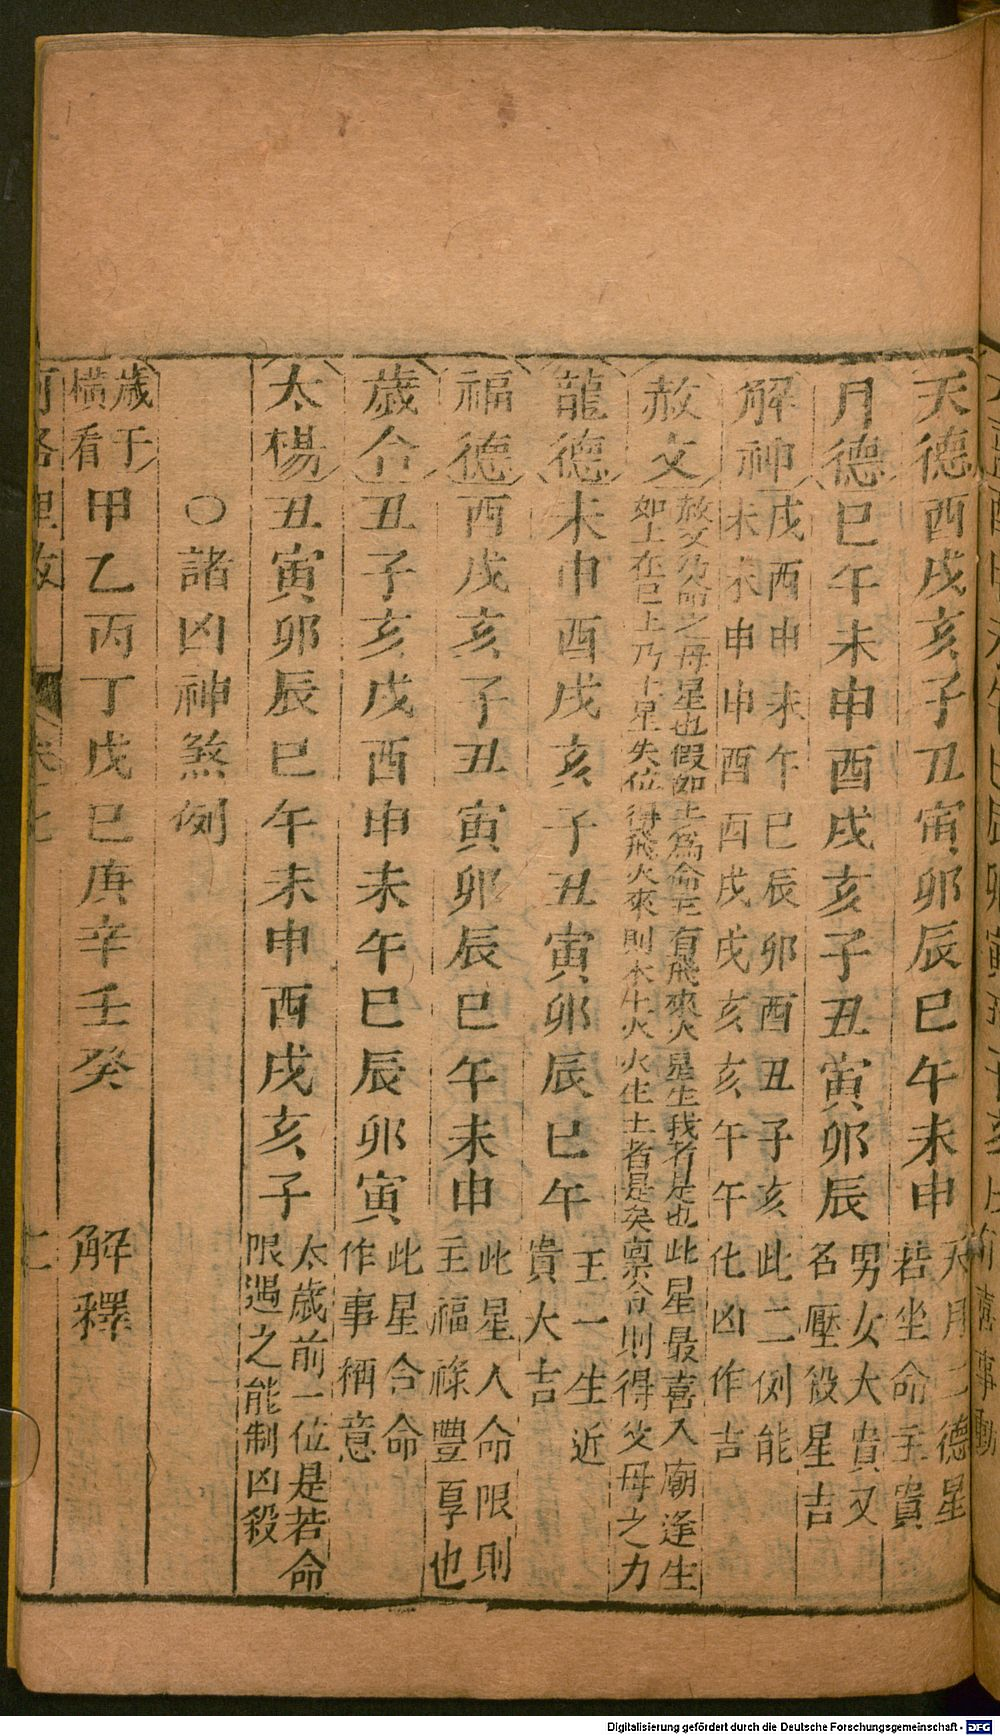 天德 酉戌亥子丑寅卯辰巳午未申 天月二德星若坐命主貴
月德 巳午未申酉戌亥子丑寅卯辰 男女大貴又名壓殺星吉
解神 戌酉申未午巳辰卯酉丑子亥 此二例能
未未申申酉酉戌戌亥亥午午 化凶作吉
赦文 赦文乃命之母星也假如土為命元有飛來火星生我者是也此星最喜入廟逢生
如土在巳上乃土星失位得飛火來則木生火火生土者是矣稟令則得父母之力
龍德 未申酉戌亥子丑寅卯辰巳午 王一生近貴大吉
福德 酉戌亥子丑寅卯辰巳午未申 此星人命限則主福祿豐享也
歲合 丑子亥戌酉申未午巳辰卯寅 此星合命作事稱意
太楊 丑寅卯辰巳午未申酉戌亥子 太歲前一位是若命限遇之能制凶殺
○諸凶神煞例
歲干橫看 甲乙丙丁戊巳庚辛壬癸 解釋
Digitalisierung gefördert durch die Deutsche Forschungsgemeinschaft - DFG